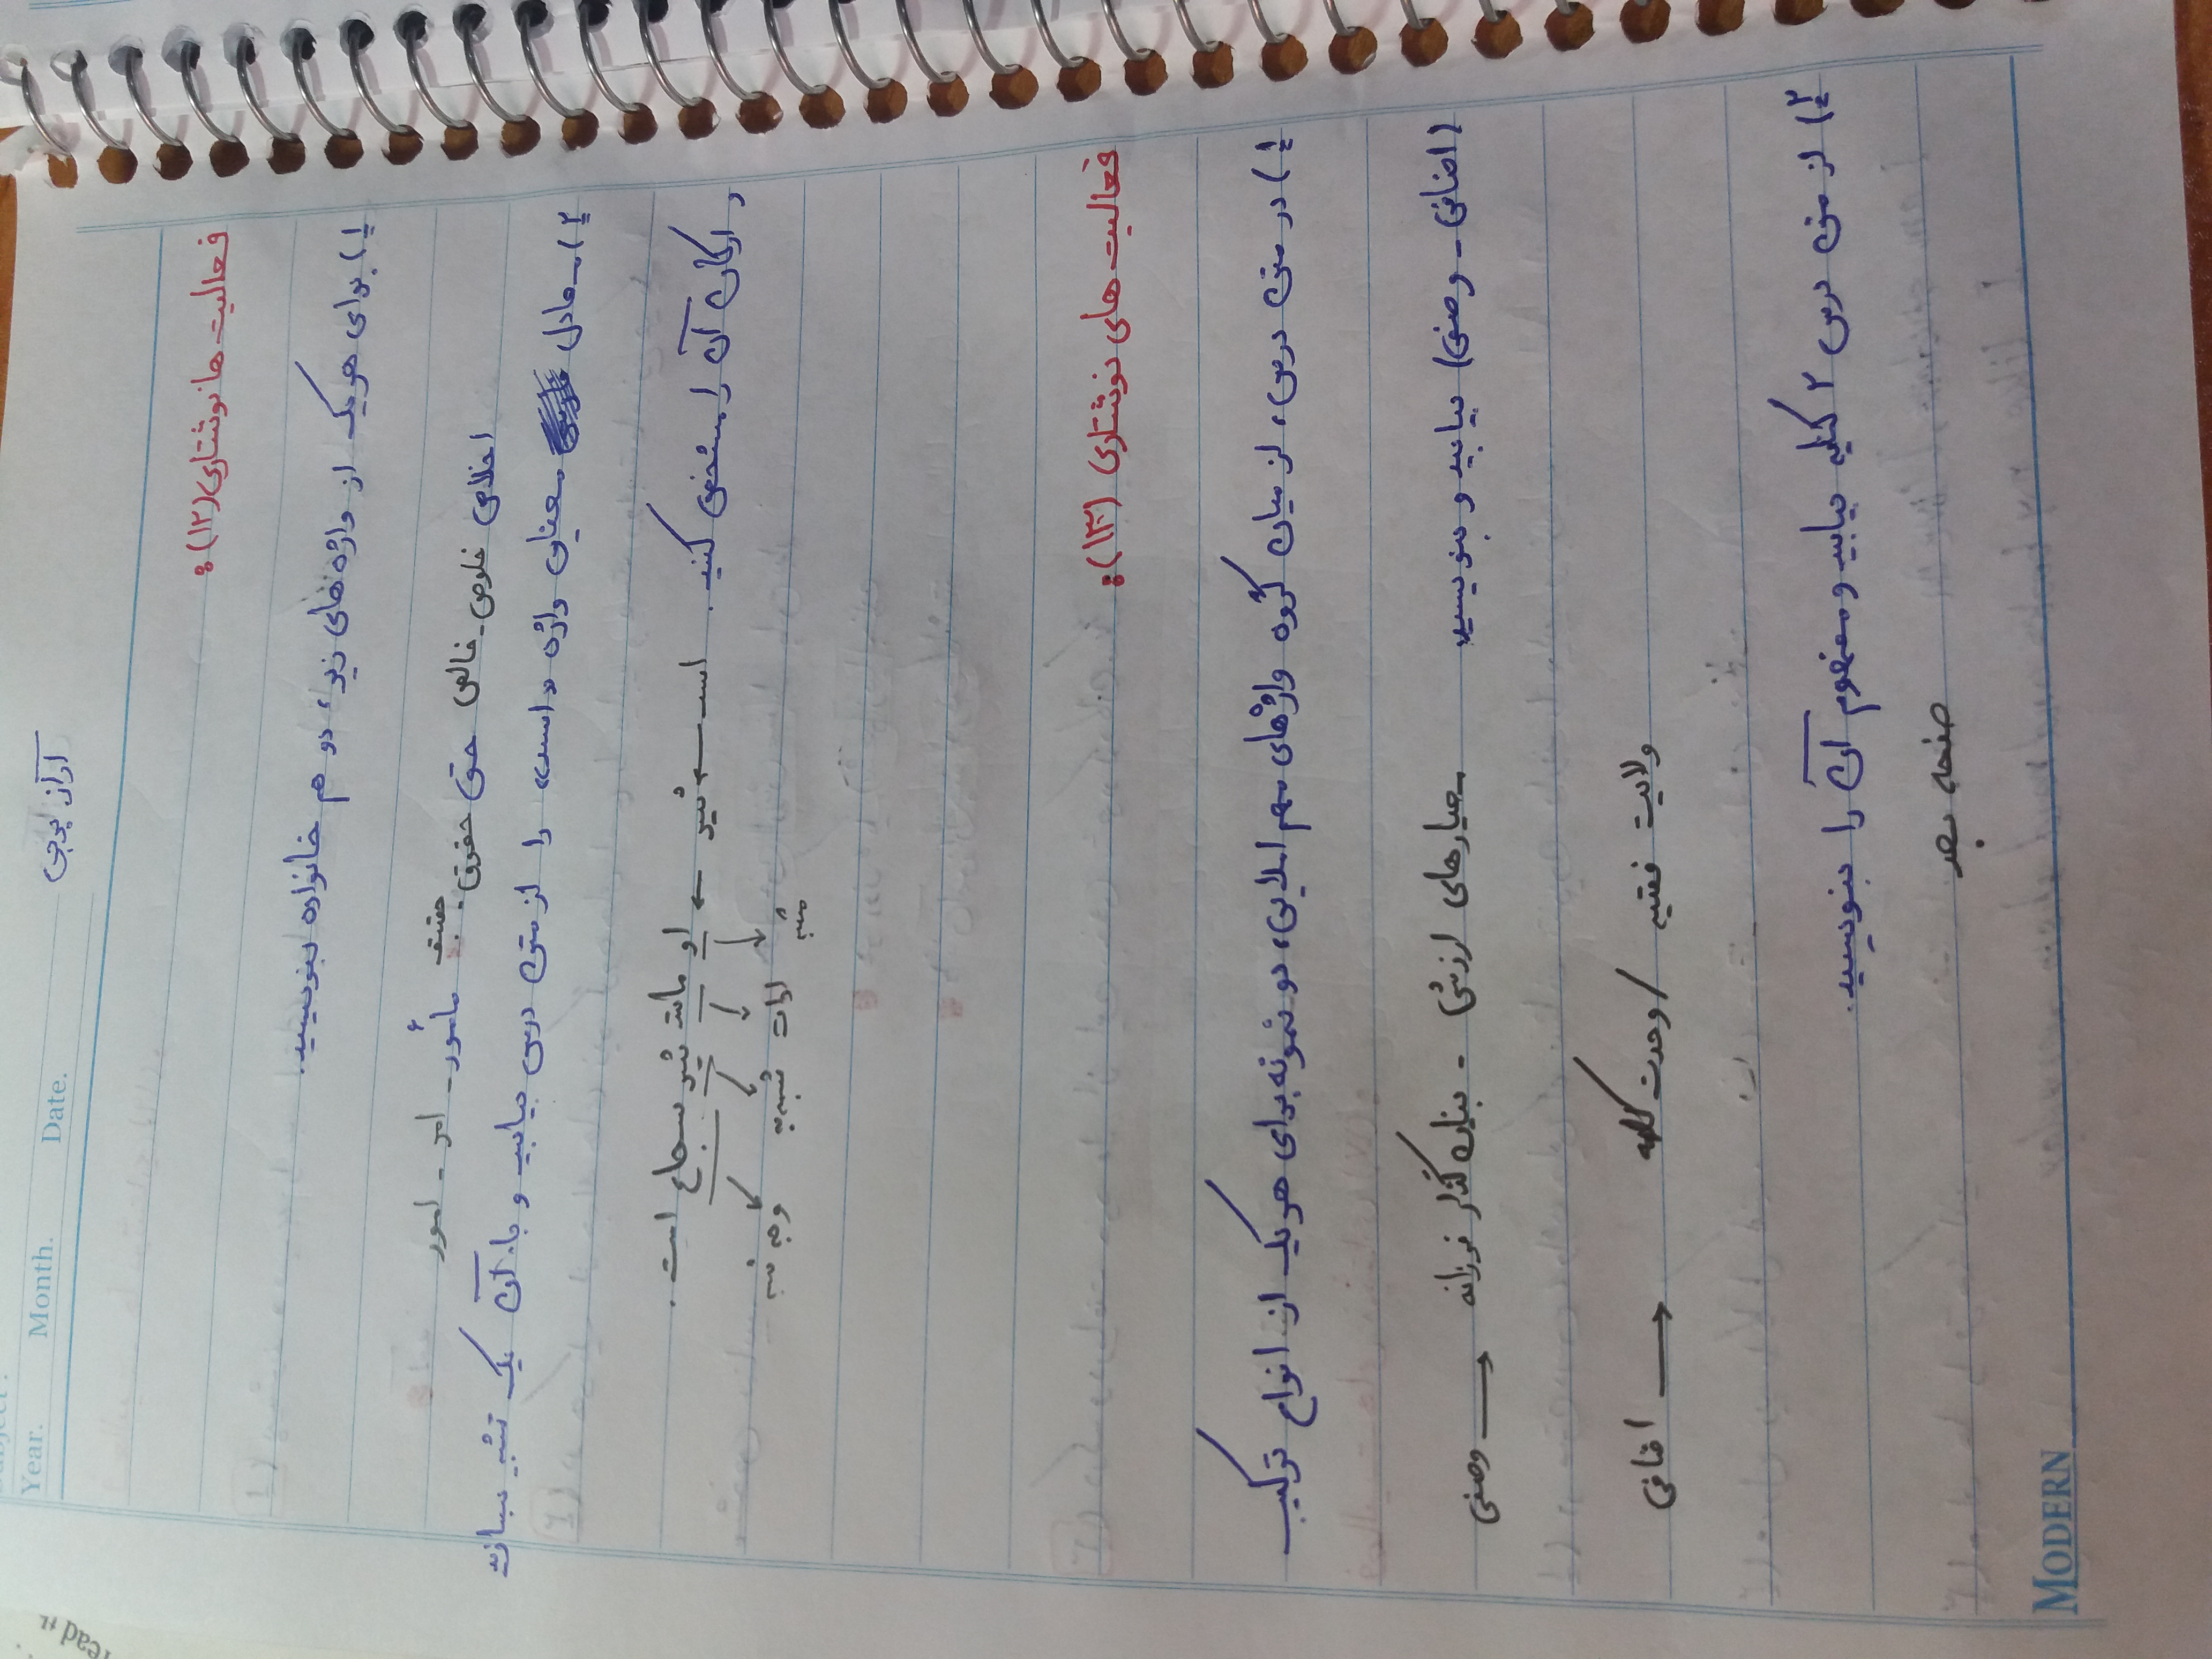 Subject:
Year. Month. Date.
read it
آراز پرچی
فعالیت ها نوشتاری (۱۲):
۱) برای هر یک از واژه های زیر، دو هم خانواده بنویسید.
اخلاص خلوص - خالص حق حقوق - حقیقت مأمور - امر - امور
۲) معادل معنایی واژه «اسد» را از متن درس بیابید و با آن یک تشبیه بسازید
و ارکان آن را مشخص کنید. اسد ← شیر ← او مانند شیر شجاع است.
مشبه ادات مشبه به وجه شبه
فعالیت های نوشتاری (۱۳):
۱) در متن درس، از میان گروه واژهای مهم املایی، دو نمونه برای هر یک از انواع ترکیب
(اضافی - وصفی) بیابید و بنویسید معیارهای ارزشی - بنیان گذار فرزانه → وصفی
ولایت فقیه / وحدت کلمه → اضافی
۲) از متن درس ۲ کنایه بیابید و مفهوم آن را بنویسید.
صفحه بعد
MODERN